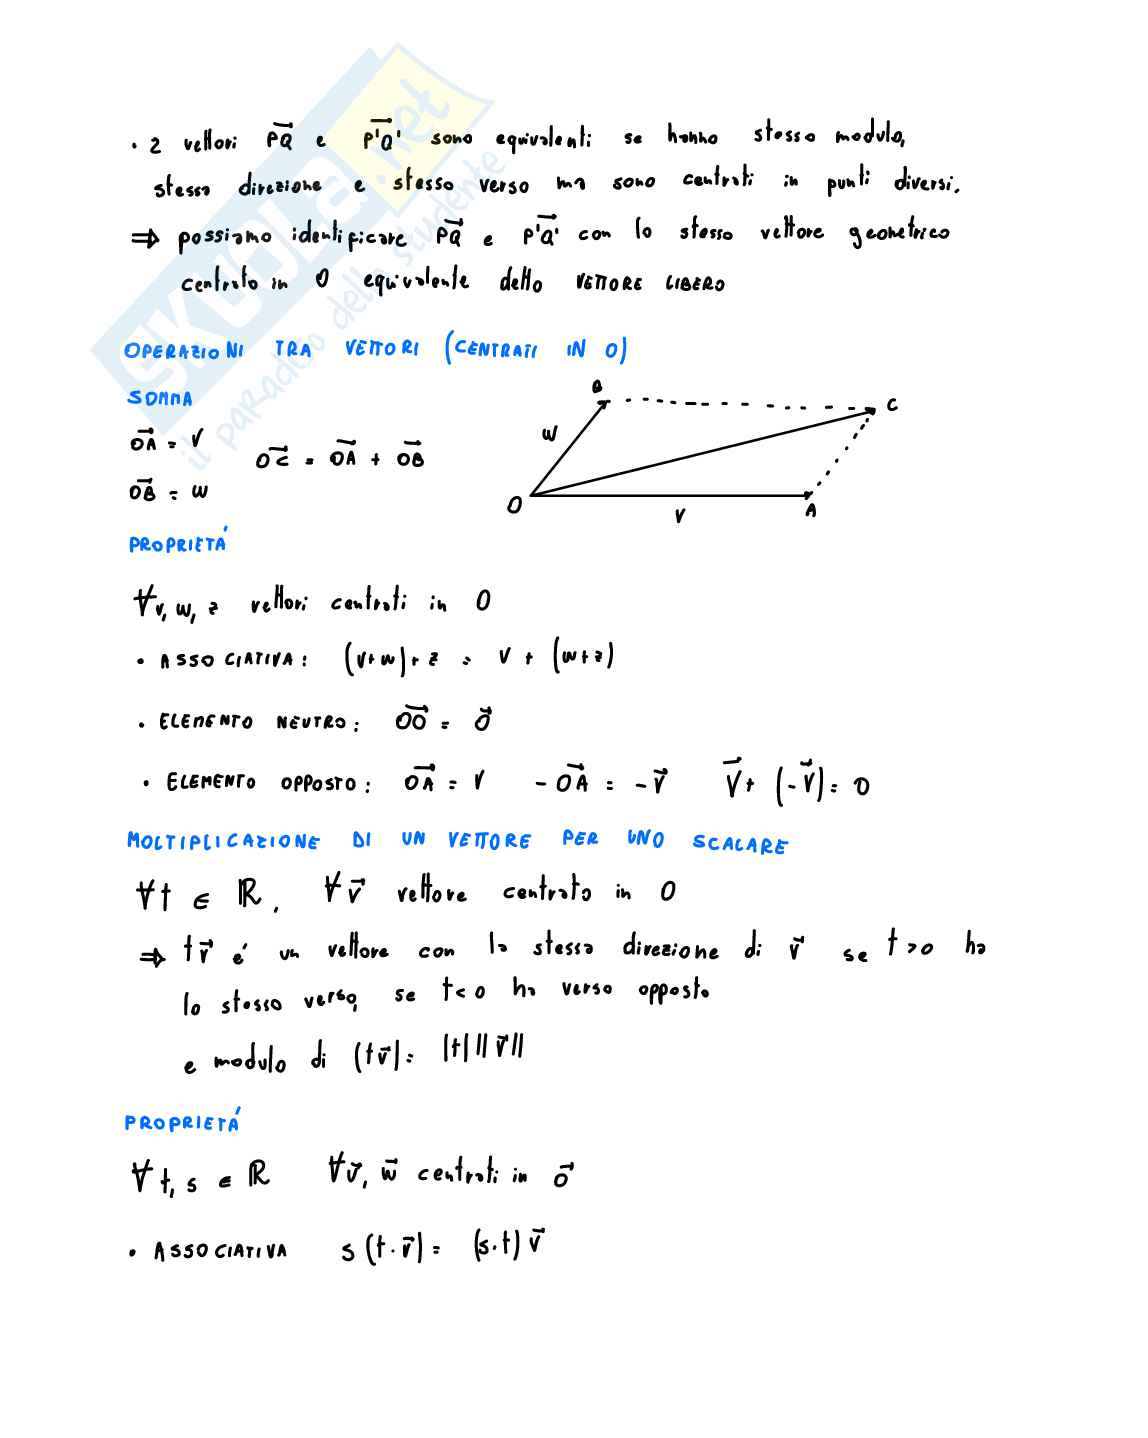 • 2 vettori PQ⃗ e P'Q'⃗ sono equivalenti se hanno stesso modulo,
stessa direzione e stesso verso ma sono centrati in punti diversi.
⇒ possiamo identificare PQ⃗ e P'Q'⃗ con lo stesso vettore geometrico
centrato in O equivalente detto VETTORE LIBERO
OPERAZIONI TRA VETTORI (CENTRATI IN O)
SOMMA
OA⃗ = v
OC⃗ = OA⃗ + OB⃗
OB⃗ = w
B
C
w
O
v
A
PROPRIETÁ
∀v, w, z vettori centrati in O
• ASSOCIATIVA: (v+w)+z = v + (w+z)
• ELEMENTO NEUTRO: OO⃗ = O⃗
• ELEMENTO OPPOSTO: OA⃗ = v -OA⃗ = -v⃗ v⃗ + (-v⃗) = 0
MOLTIPLICAZIONE DI UN VETTORE PER UNO SCALARE
∀t ∈ ℝ, ∀v⃗ vettore centrato in O
⇒ tv⃗ é un vettore con la stessa direzione di v⃗ se t>0 ha
lo stesso verso, se t<0 ha verso opposto
e modulo di (tv⃗) = |t| ||v⃗||
PROPRIETÁ
∀t, s ∈ ℝ ∀v⃗, w⃗ centrati in O⃗
• ASSOCIATIVA s(t·v⃗) = (s·t)v⃗
SKUOLA.net
il paradiso dello studente